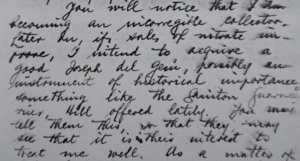 You will notice that I am
becoming an incorregible collector.
Later on, if sales of nitrate im-
prove, I intend to acquire a
good Joseph del Gesù, possibly an
instrument of historical importance
something like the Sainton Guarne
rius, Hill offered lately. You may
tell them this, so that they may
see that it is in their interest to
treat me well. As a matter of